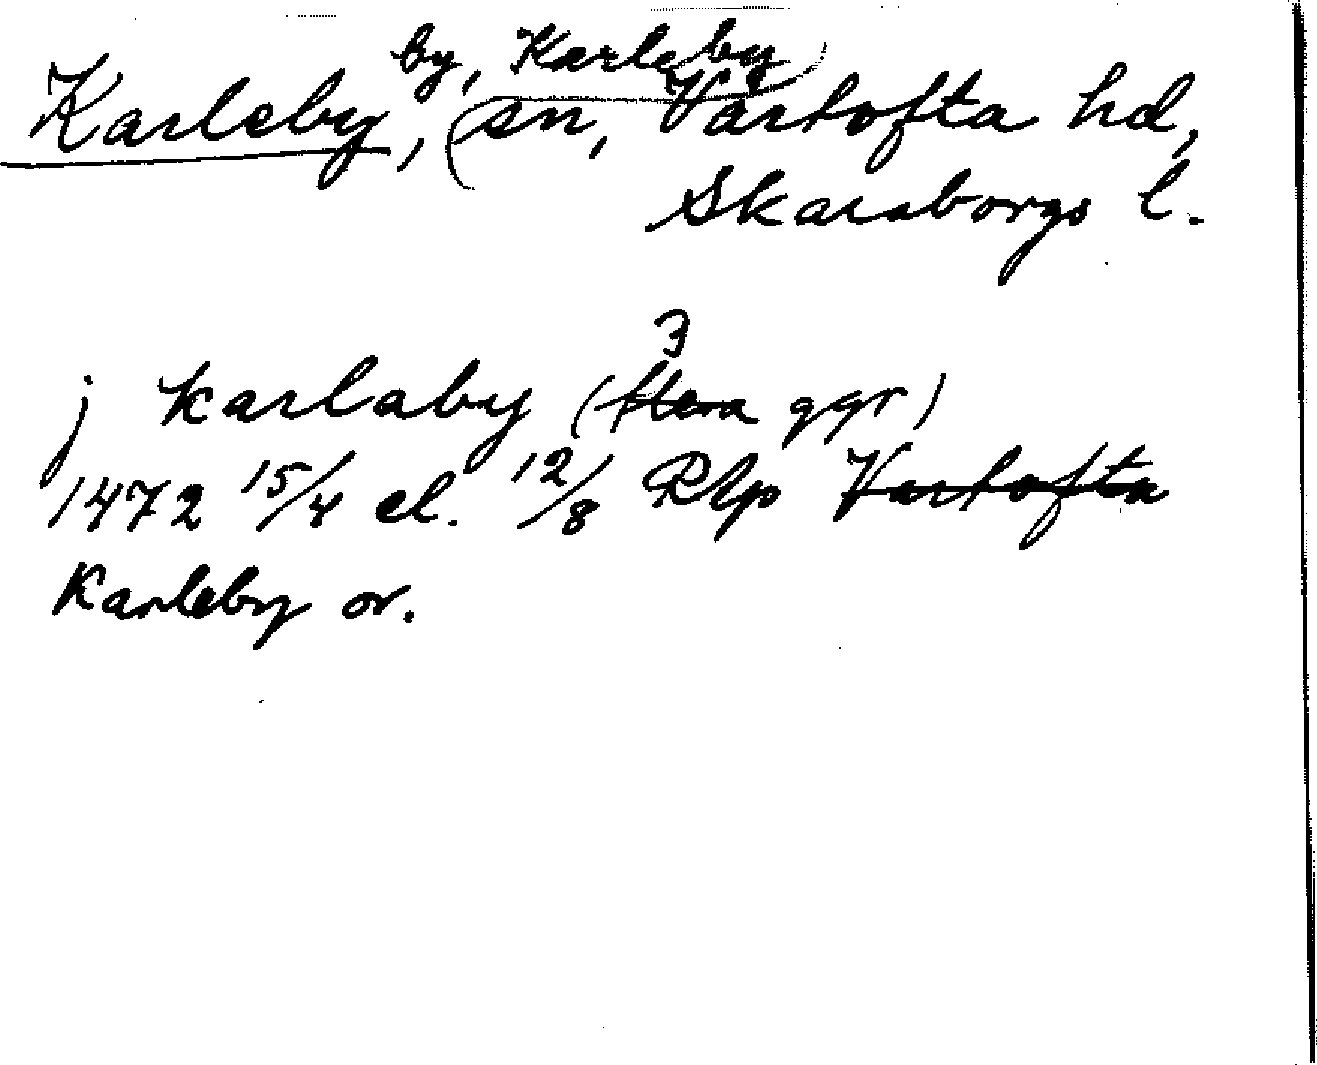 by, Karleby
Karleby, (sn, Vartofta hd,
Skaraborgs l.
3
j karlaby (flera ggr)
1472 15/4 el. 12/8 Rlp Vartofta
Karleby or.